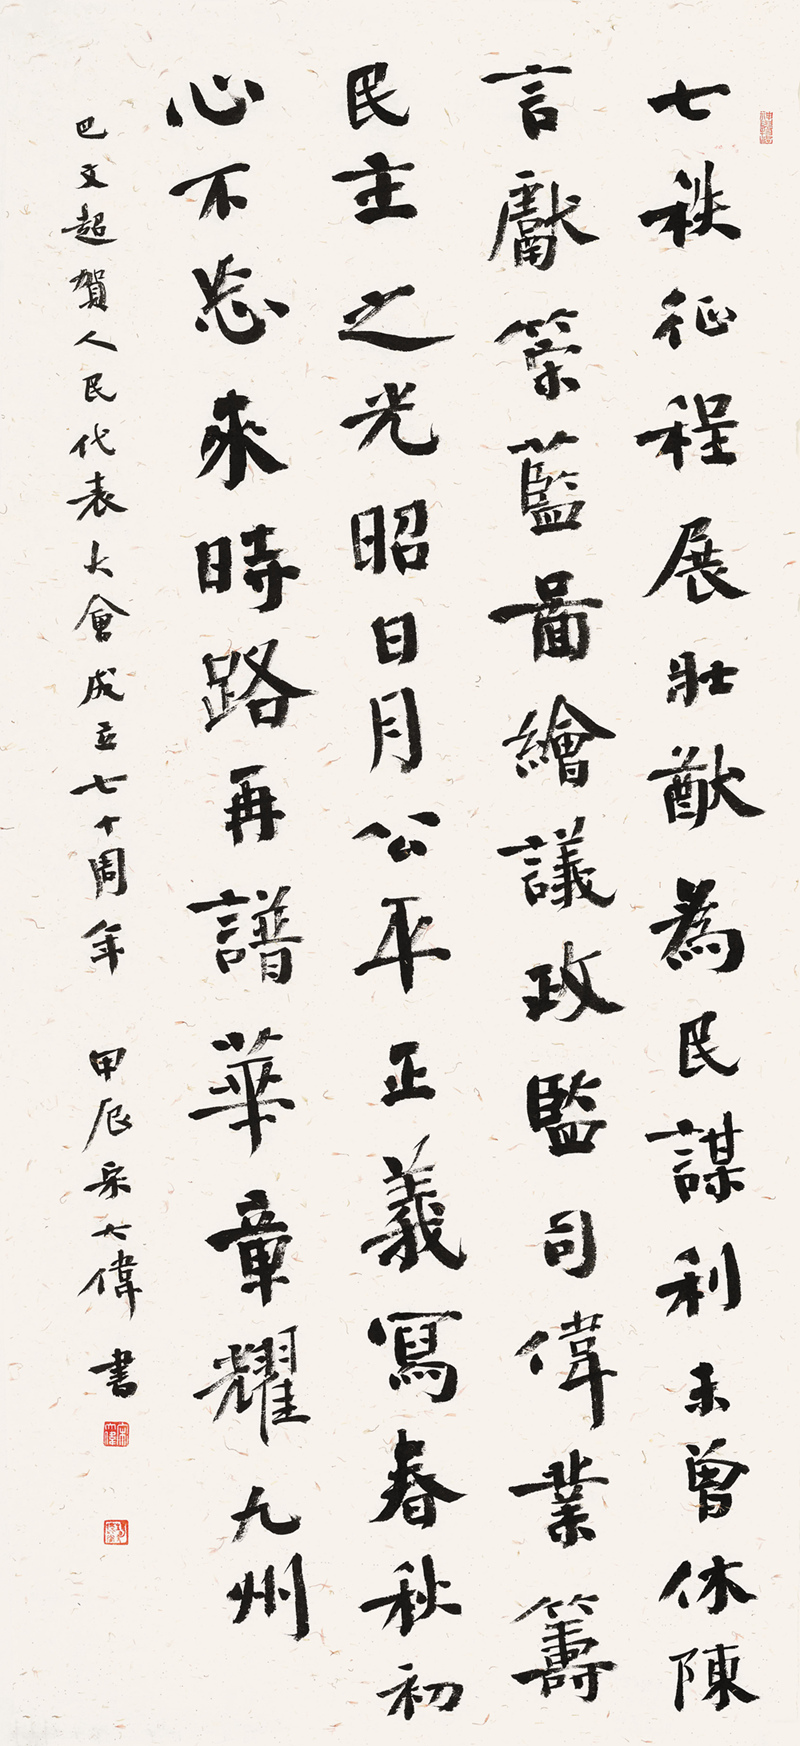 七秩征程展壯猷為民謀利未曾休陳
言獻策藍圖繪議政監司偉業籌
民主之光昭日月公平正義寫春秋初
心不忘來時路再譜華章耀九州
巴文超賀人民代表大會成立七十周年 甲辰宋大偉書